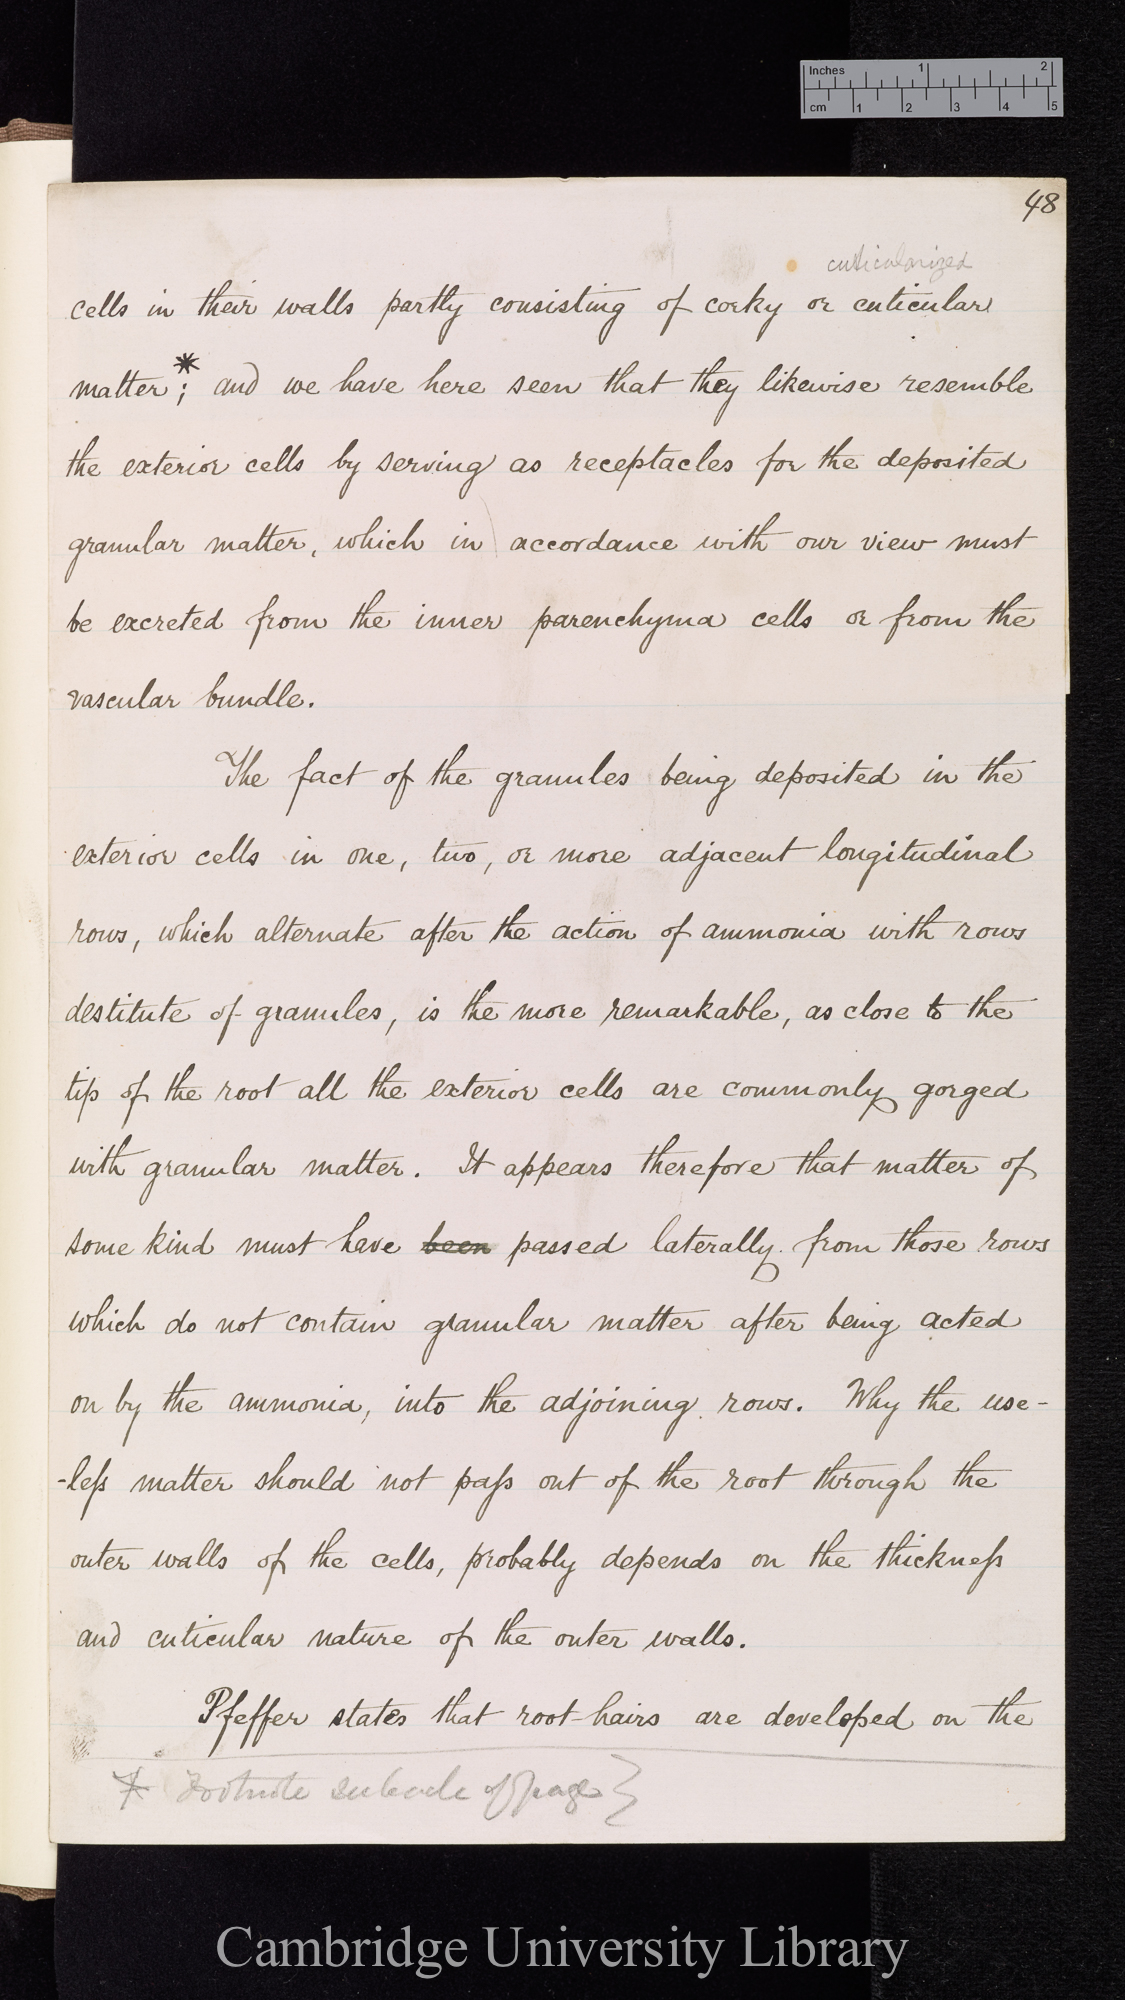 Inches 1 2
cm 1 2 3 4 5
48
cuticularized
cells in their walls partly consisting of corky or cuticular
matter*; and we have here seen that they likewise resemble
the exterior cells by serving as receptacles for the deposited
granular matter, which in accordance with our view must
be excreted from the inner parenchyma cells or from the
vascular bundle.
The fact of the granules being deposited in the
exterior cells in one, two, or more adjacent longitudinal
rows, which alternate after the action of ammonia with rows
destitute of granules, is the more remarkable, as close to the
tip of the root all the exterior cells are commonly gorged
with granular matter. It appears therefore that matter of
some kind must have been passed laterally from those rows
which do not contain granular matter after being acted
on by the ammonia, into the adjoining rows. Why the use-
-leſs matter should not paſs out of the root through the
outer walls of the cells, probably depends on the thickneſs
and cuticular nature of the outer walls.
Pfeffer states that root-hairs are developed on the
* Footnote of page}
Cambridge University Library